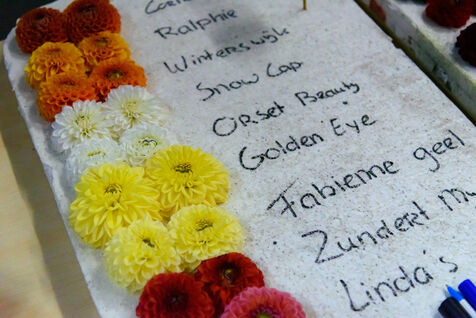 Ralphie
Winterswijk
Snow Cap
Orset Beauty
Golden Eye
Fabienne geel
Zundert
Linda's